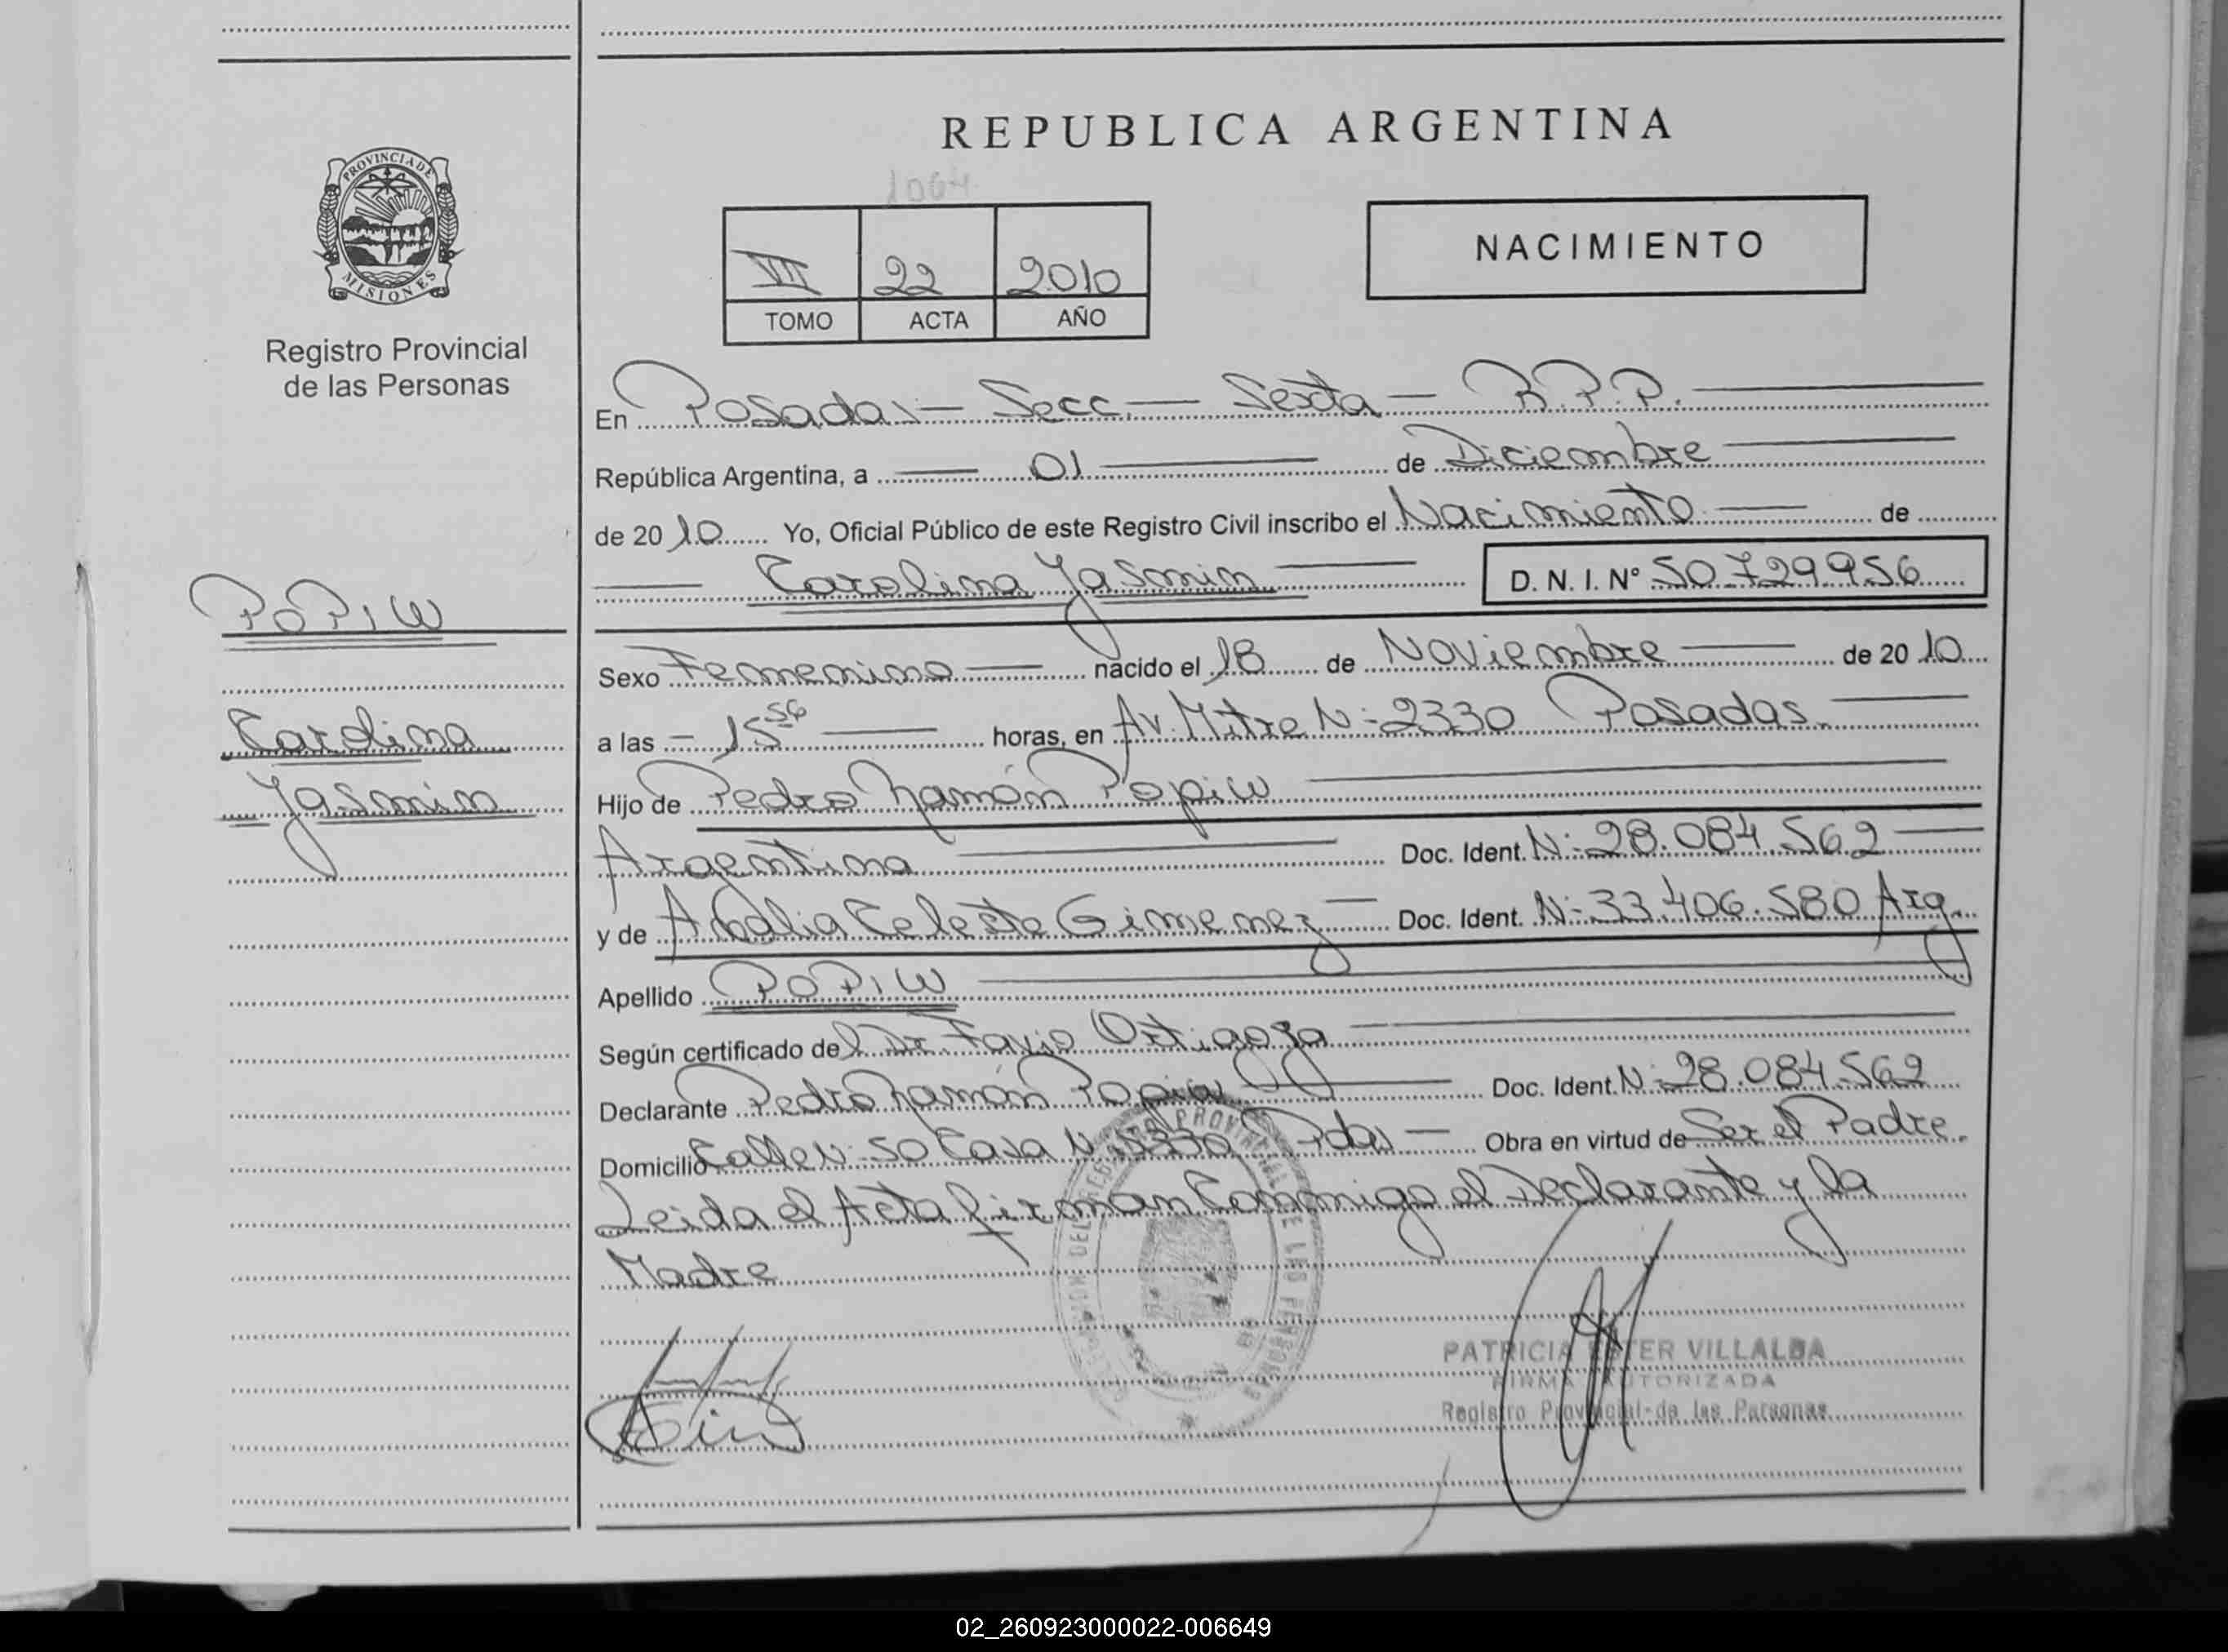 REPUBLICA ARGENTINA
1004
PROVINCIA DE
MISIONES
Registro Provincial
de las Personas
VII 22 2010
TOMO ACTA AÑO
NACIMIENTO
En Posadas - Secc. - Sexta - R.P.P.
República Argentina, a 01 de Diciembre
de 2010 Yo, Oficial Público de este Registro Civil inscribo el Nacimiento de
Carolina Yasmin D. N. I. N° 50.729.956
POPIW
Carolina
Yasmin
Sexo Femenino nacido el 18 de Noviembre de 2010
a las 15 56 horas, en Av. Mitre N: 2330 Posadas.
Hijo de Pedro Ramón Popiw
Argentina Doc. Ident. N: 28.084.562
y de Analia Celeste Gimenez Doc. Ident. N: 33.406.580 Arg.
Apellido POPIW
Según certificado del Dr. Favio Ortigoza
Declarante Pedro Ramón Popiw Doc. Ident. N: 28.084.562
Domicilio Calle N: 50 Casa N: 5330 Pdas Obra en virtud de Ser el Padre.
Leida el Acta firman Conmigo el Declarante y la
Madre
PATRICIA ESTER VILLALBA
FIRMA AUTORIZADA
Registro Provincial de las Personas
02_260923000022-006649